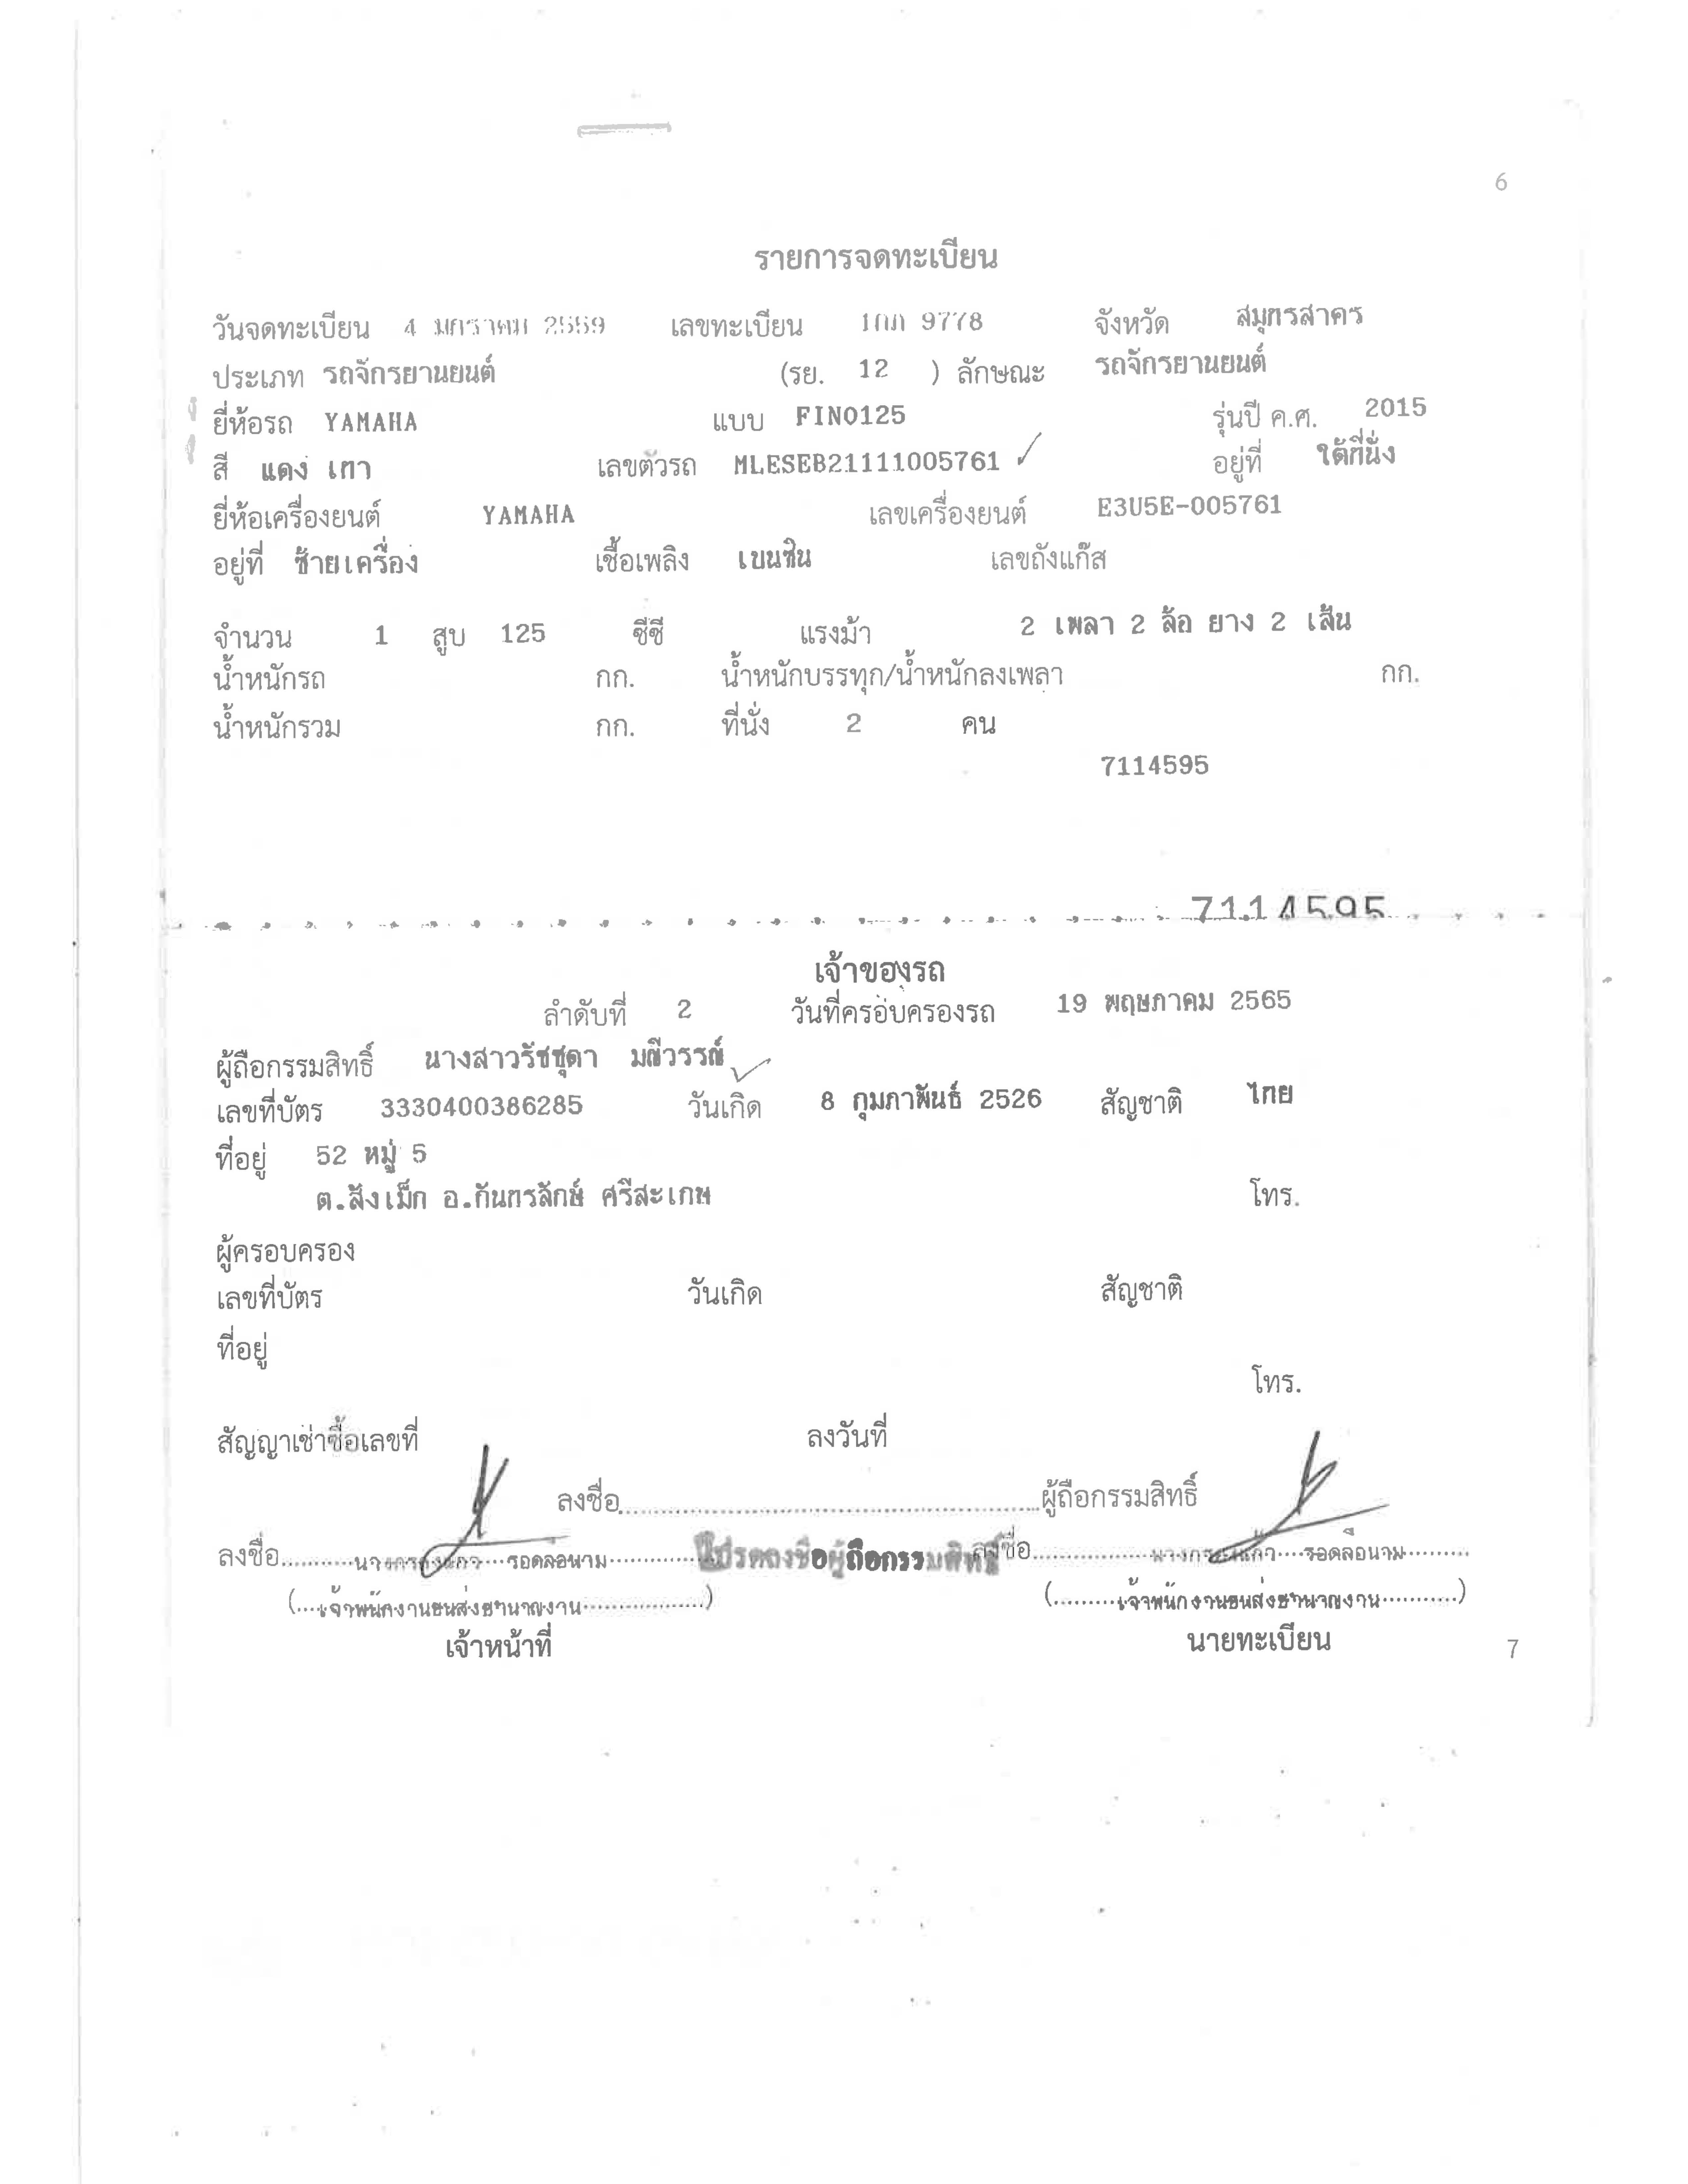 6
รายการจดทะเบียน
วันจดทะเบียน 4 มกราคม 2559 เลขทะเบียน 1กก 9778 จังหวัด สมุทรสาคร
ประเภท รถจักรยานยนต์ (รย. 12 ) ลักษณะ รถจักรยานยนต์
ยี่ห้อรถ YAMAHA แบบ FINO125 รุ่นปี ค.ศ. 2015
สี แดง เทา เลขตัวรถ MLESEB21111005761 อยู่ที่ ใต้ที่นั่ง
ยี่ห้อเครื่องยนต์ YAMAHA เลขเครื่องยนต์ E3U5E-005761
อยู่ที่ ซ้ายเครื่อง เชื้อเพลิง เบนซิน เลขถังแก๊ส
จำนวน 1 สูบ 125 ซีซี แรงม้า 2 เพลา 2 ล้อ ยาง 2 เส้น
น้ำหนักรถ กก. น้ำหนักบรรทุก/น้ำหนักลงเพลา กก.
น้ำหนักรวม กก. ที่นั่ง 2 คน
7114595
7114595
เจ้าของรถ
ลำดับที่ 2 วันที่ครอบครองรถ 19 พฤษภาคม 2565
ผู้ถือกรรมสิทธิ์ นางสาวรัชชุดา มณีวรรณ์
เลขที่บัตร 3330400386285 วันเกิด 8 กุมภาพันธ์ 2526 สัญชาติ ไทย
ที่อยู่ 52 หมู่ 5
ต.สังเม็ก อ.กันทรลักษ์ ศรีสะเกษ โทร.
ผู้ครอบครอง
เลขที่บัตร วันเกิด สัญชาติ
ที่อยู่
โทร.
สัญญาเช่าซื้อเลขที่ ลงวันที่
ลงชื่อ ผู้ถือกรรมสิทธิ์
ลงชื่อ โปรดลงชื่อผู้ถือกรรมสิทธิ์ ลงชื่อ
(เจ้าพนักงานขนส่งชำนาญงาน) (เจ้าพนักงานขนส่งชำนาญงาน)
เจ้าหน้าที่ นายทะเบียน
7